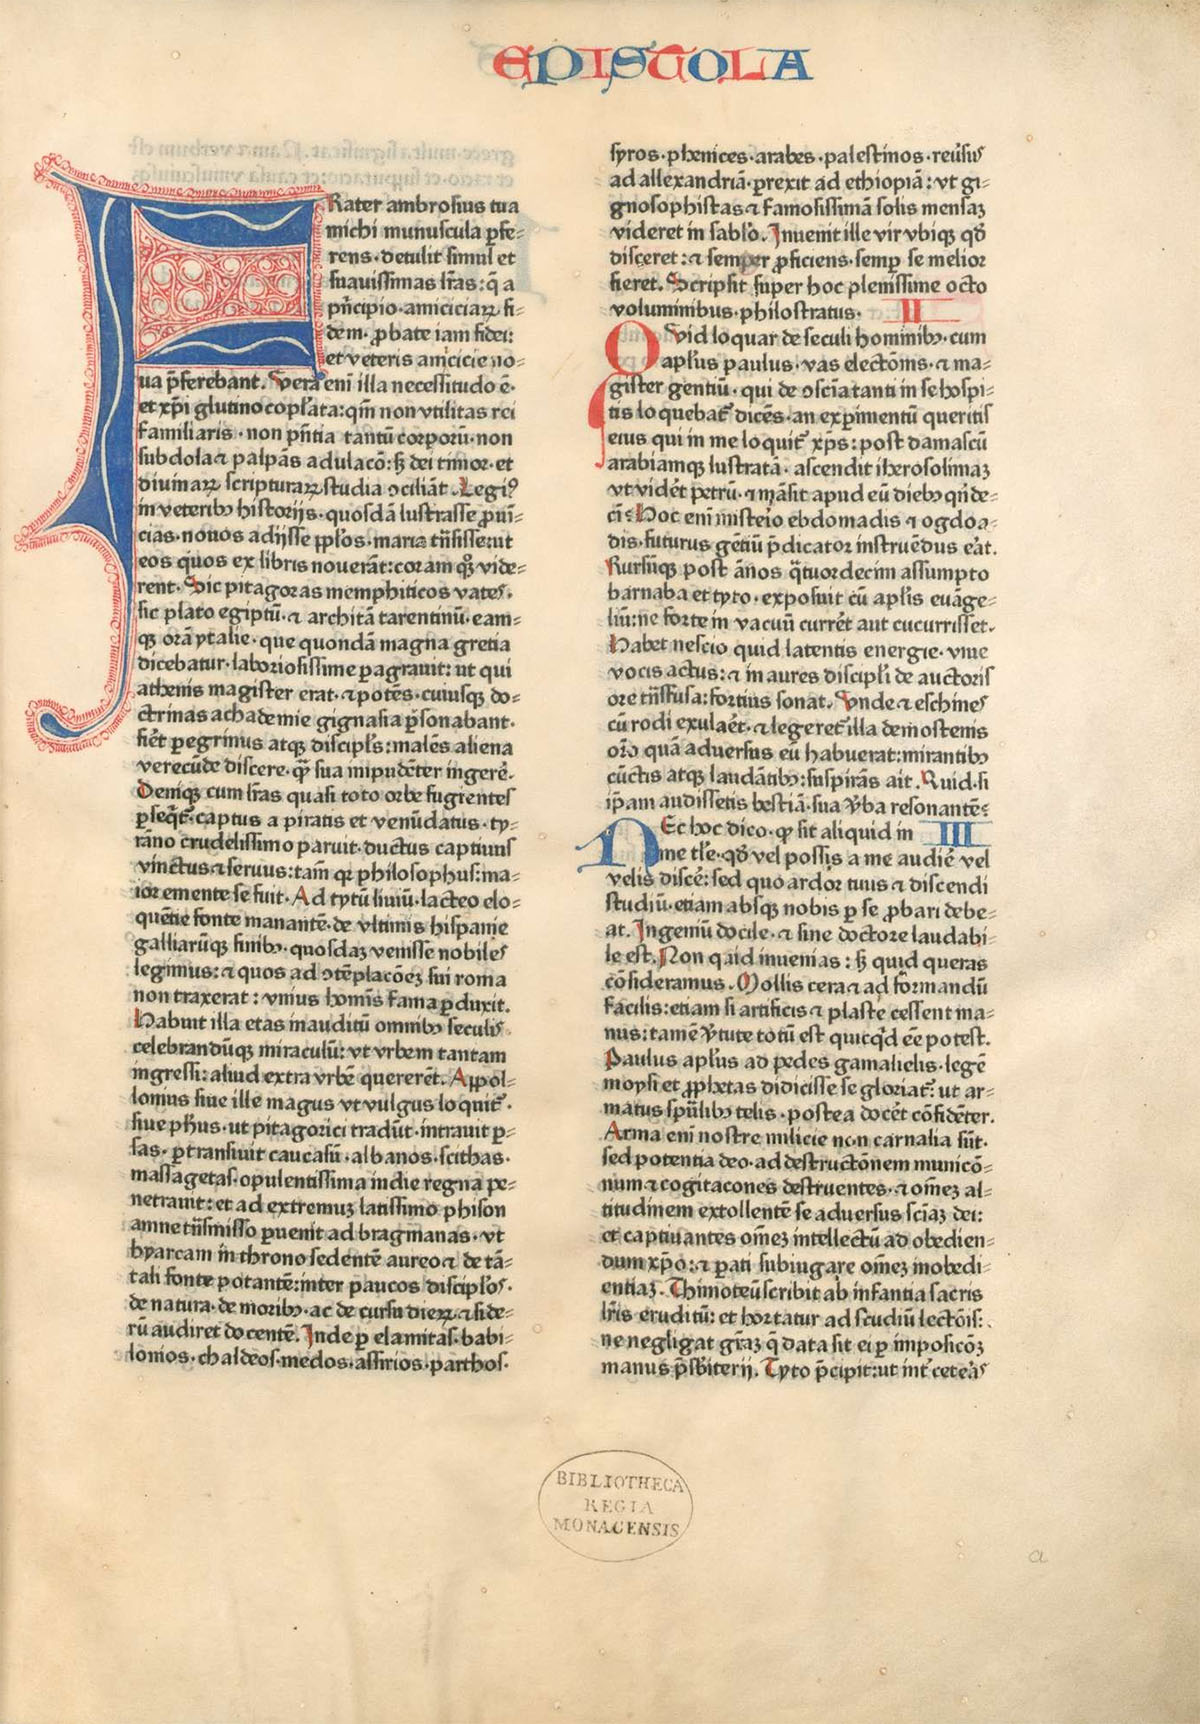 EPISTOLA
FRater ambrosius tua
michi munuscula ꝑfe-
rens· detulit simul et
suauissimas lr̃as: q̃ a
pñcipio amiciciaꝝ fi-
dem· ꝓbate iam fidei:
et veteris amicicie no-
ua p̃ferebant. Vera em̃ illa necessitudo ẽ·
et xp̃i glutino coplata: qm̃ non vtilitas rei
familiaris· non pñtia tantũ corporũ· non
subdola ⁊ palpãs adulacõ: sꝫ dei timor· et
diuinaꝝ scripturaꝝ studia ꝯciliãt. Legiꝰ
in veteribꝫ historijs· quosdã lustrasse ꝓuĩ-
cias· nouos adijsse pplos· maria trñsisse: ut
eos quos ex libris nouerãt: coram qꝫ vide-
rent· Sic pitagoras memphiticos vates·
sic plato egiptũ· ⁊ architã tarentinũ· eam-
qꝫ orã ytalie· que quondã magna gretia
dicebatur· laboriosissime ꝑagrauit: ut qui
athenis magister erat· ⁊ potẽs· cuiusqꝫ do-
ctrinas achademie gignasia ꝑsonabant·
fiẽt ꝑegrinus atqꝫ discipls: malẽs aliena
verecũde discere· qͫ sua impudẽter ingerẽ.
Deniqꝫ cum lr̃as quasi toto orbe fugientes
ꝑseqt᷑· captus a piratis et venũdatus· ty-
rãno crudelissimo paruit· ductus captiuus
vinctus ⁊ seruus: tam̃ qꝛ philosophus: ma-
ior emente se fuit. Ad tytũ liuiũ· lacteo elo-
quẽtie fonte manantẽ· de vltimis hispanie
galliarũqꝫ finibꝫ· quosdaꝫ venisse nobiles
legimus: ⁊ quos ad ꝯtẽplacõeꝫ sui roma
non traxerat: vnius homĩs fama ꝑduxit.
Habuit illa etas inauditũ omnibꝫ seculis·
celebrandũqꝫ miraculũ: vt vrbem tantam
ingressi: aliud extra vrbẽ quererẽt. Appol-
lonius siue ille magus vt vulgus loquit᷑·
siue phus· ut pitagorici tradũt· intrauit ꝑ-
sas· ꝑtransiuit caucasũ· albanos· scithas·
massagetas· opulentissima indie regna pe-
netrauit: et ad extremuꝫ latissimo phison
amne trñsmisso ꝑuenit ad bragmanas· vt
hyarcam in throno sedentẽ aureo ⁊ de tã-
tali fonte potantẽ: inter paucos discipłos·
de natura· de moribꝫ· ac de cursu dieꝝ ⁊ side-
rũ audiret docentẽ. Inde ꝑ elamitas· babi-
lonios· chaldeos· medos· assirios· parthos·
syros· phenices· arabes· palestinos· reũsus
ad allexandriã· ꝑrexit ad ethiopiã: vt gi-
gnosophistas ⁊ famosissimã solis mensaꝫ
videret in sablo. Inuenit ille vir vbiqꝫ qd̃
disceret: ⁊ semper ꝓficiens· semꝑ se melior
fieret. Scripsit super hoc plenissime octo
voluminibus· philostratus· II
QVid loquar de seculi hominibꝫ· cum
apłus paulus· vas electõnis· ⁊ ma-
gister gentiũ· qui de ꝯsciã tanti in se hospi-
tis loquebat᷑ dicẽs· an exꝑimentũ queritis
eius qui in me loquit᷑ xp̃s: post damascũ
arabiamqꝫ lustratã· ascendit iherosolimaꝫ
vt vidẽt petrũ· ⁊ mãsit apud eũ diebꝫ qñde-
cĩ: Hoc em̃ misteio ebdomadis ⁊ ogdoa-
dis· futurus gẽtiũ p̃dicator instruẽdus e᷑at.
Rursũqꝫ post ãnos q̃tuordecim assumpto
barnaba et tyto· exposuit cũ aplis euãge-
liũ: ne forte in vacuũ currẽt aut cucurrisset.
Habet nescio quid latentis energie· viue
vocis actus: ⁊ in aures discipli de auctoris
ore trñsfusa: fortius sonat. Vnde ⁊ eschines
cũ rodi exulaẽt· ⁊ legeret᷑ illa demostenis
orõ quã aduersus eũ habuerat: mirantibꝫ
cũctis atqꝫ laudãtibꝫ: suspirãs ait. Ruid· si
ip̃am audissetis bestiã· sua v̾ba resonantẽ:
NEc hoc dico· qͫ sit aliquid in III
me tl̃e· qd̃ vel possis a me audiẽ vel
velis discẽ: sed quo ardor tuus ⁊ discendi
studiũ· etiam absqꝫ nobis ꝑ se ꝓbari debe-
at. Ingeniũ docile· ⁊ sine doctore laudabi-
le est. Non quid inuenias: sꝫ quid queras
cõsideramus. Mollis cera ⁊ ad formandũ
facilis: etiam si artificis ⁊ plaste cessent ma-
nus: tamẽ v̾tute totũ est quicqd̾ eẽ potest.
Paulus apłus ad pedes gamalielis· legẽ
moysi et ꝓphetas didicisse se gloriat᷑: ut ar-
matus spũlibꝫ telis· postea docẽt cõfidẽter.
Arma em̃ nostre milicie non carnalia sũt·
sed potentia deo· ad destructõnem municõ-
num ⁊ cogitacones destruentes· ⁊ om̃eꝫ al-
titudinem extollentẽ se aduersus sciãꝫ dei:
et captiuantes om̃eꝫ intellectũ ad obedien-
dum xp̃o: ⁊ ꝑati subiugare om̃eꝫ inobedi-
entiaꝫ. Thimoteũ scribit ab infantia sacris
lr̃is eruditũ: et hortatur ad studiũ lectõis:
ne negligat gr̃aꝫ q̃ data sit ei ꝑ imposicõꝫ
manus p̃sbiterij. Tyto p̃cipit: ut int᷑ cete᷑as
BIBLIOTHECA
REGIA
MONACENSIS
a